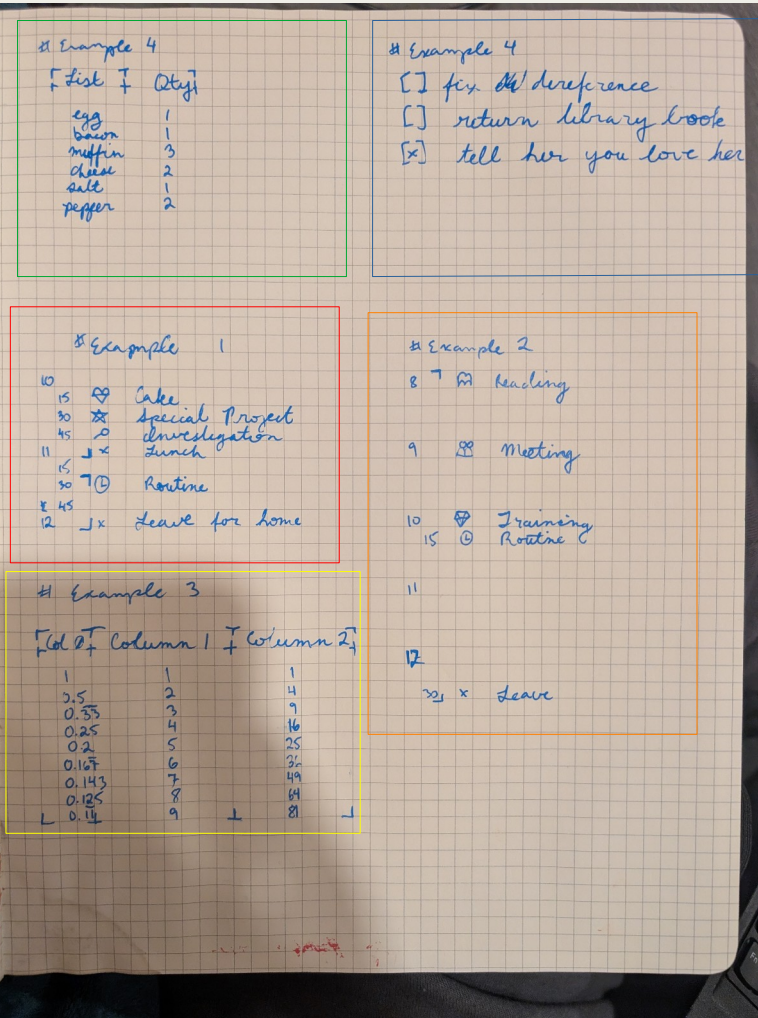 # Example 4
List Qty
egg 1
bacon 1
muffin 3
cheese 2
salt 1
pepper 2
# Example 4
[ ] fix dereference
[ ] return library book
[x] tell her you love her
# Example 1
10
15 Cake
30 Special Project
45 Investigation
11 x Lunch
15
30 Routine
45
12 x Leave for home
# Example 2
8 Reading
9 Meeting
10 Training
15 Routine
11
12
30 x Leave
# Example 3
Col 0 Column 1 Column 2
1 1 1
0.5 2 4
0.33 3 9
0.25 4 16
0.2 5 25
0.167 6 36
0.143 7 49
0.125 8 64
0.11 9 81
Fn